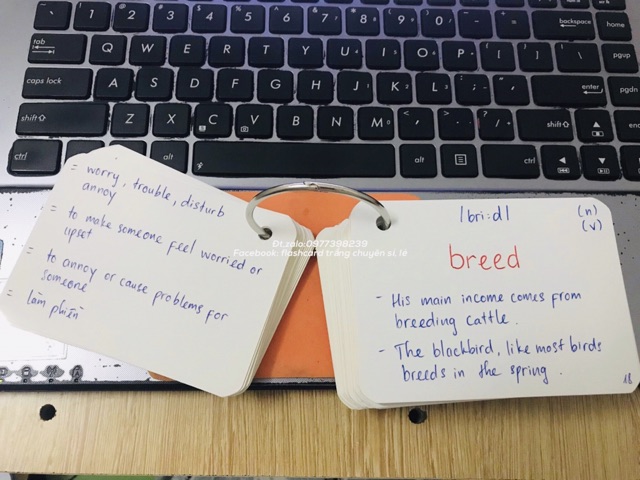 = worry, trouble, disturb
annoy
= to make someone feel worried or
upset
= to annoy or cause problems for
someone
= làm phiền
/bri:d/ (n)
(v)
breed
- His main income comes from
breeding cattle.
- The blackbird, like most birds
breeds in the spring.
18
Đt.zalo:0977398239
Facebook: flashcard trắng chuyên sỉ, lẻ
2 3 4 5 6 7 8 9 0
backspace home
tab Q W E R T Y U I O P pgup
caps lock A S D F G H J K L enter pgdn
shift Z X C V B N M shift end
ctrl alt alt ctrl